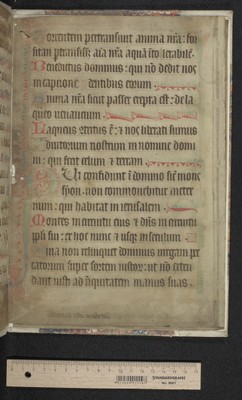 Torrentem pertransiuit anima nr̄a: for
sitan ptransiss; aīa nr̄a aquā ītollerabilē.
Benedictus dominus: qui nō dedit nos
in captionē dentibus eorum
Anima nr̄a sicut passer erepta est: de la
queo uenantium
Laqueus ↄtritus ē: ⁊ nos liberati sumus
Adiutorium nostrum in nomine domi
ni: qui fecit celum ⁊ terram.
Qui confidunt ī domino sic̄ mons
syon: non commouebitur in eter
num: qui habitat in ierusalem.
Montes in circuitu eius: ⁊ dn̄s in circuitu
ipli sui: ex hoc nunc ⁊ usq; in seculum
Quia non relinquet dominus uirgam pec
catorum super sortem iustor̄: ut nō exten
dant iusti ad iniquitatem manus suas.